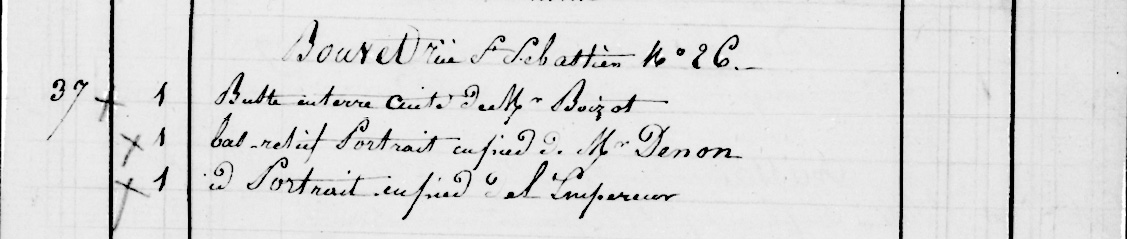 Bouvet rue St Sebastien No 26.
37 x 1 Buste en terre cuite de Mr Boizot
x 1 bas-relief Portrait en pied de Mr Denon
x 1 id Portrait en pied de l'Empereur